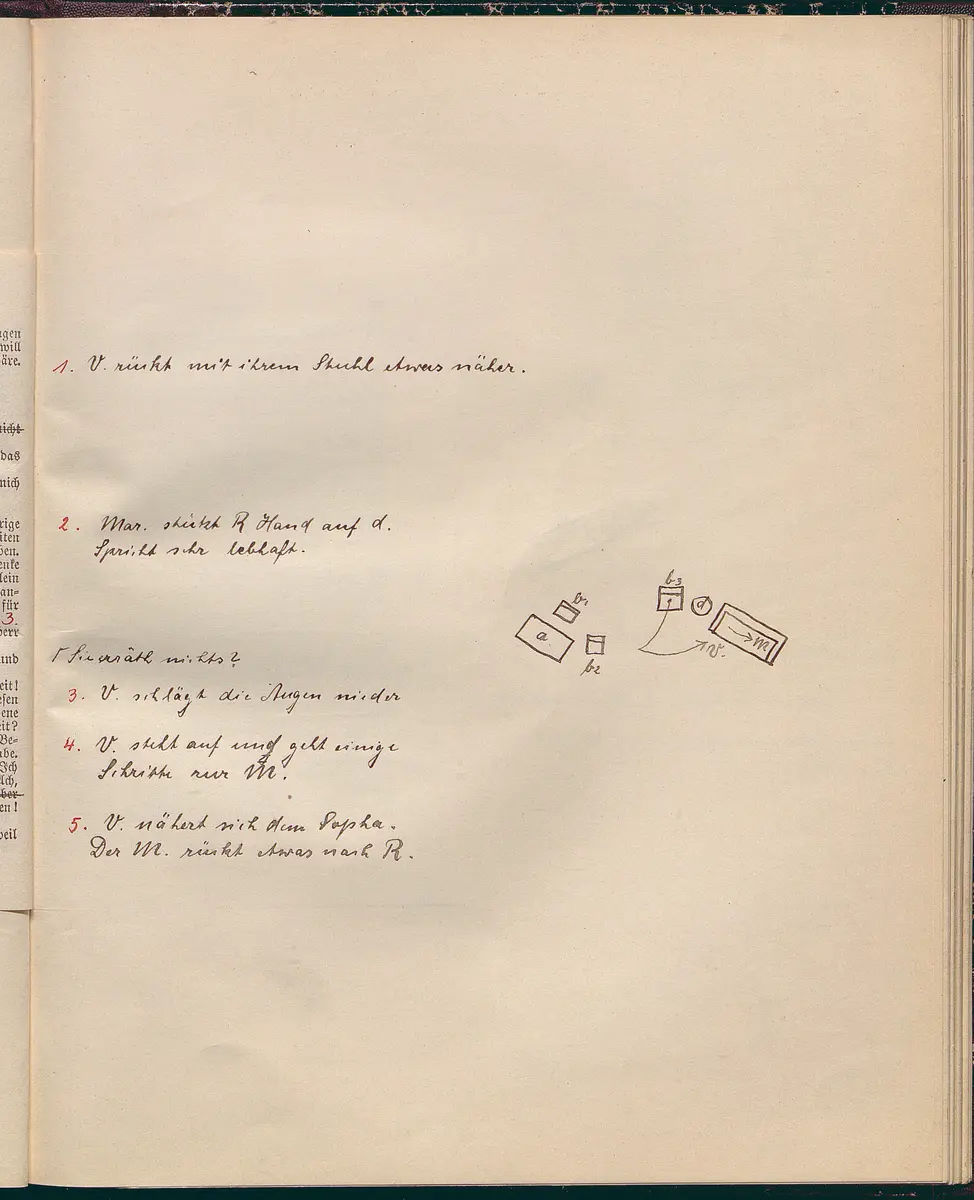 1. V. rückt mit ihrem Stuhl etwas näher.
2. Mar. stützt R Hand auf d.
Spricht sehr lebhaft.
Sie erräth nichts?
3. V. schlägt die Augen nieder
4. V. steht auf und geht einige
Schritte zur M.
5. V. nähert sich dem Sopha.
Der M. rückt etwas nach R.
b1
a
b2
b3
d
m
V.
will
äre.
icht
das
nich
rige
iten
ben.
enke
lein
an=
für
3.
herr
und
eit!
esen
ene
eit?
Be=
abe.
Ich
Ach,
ber
en!
weil